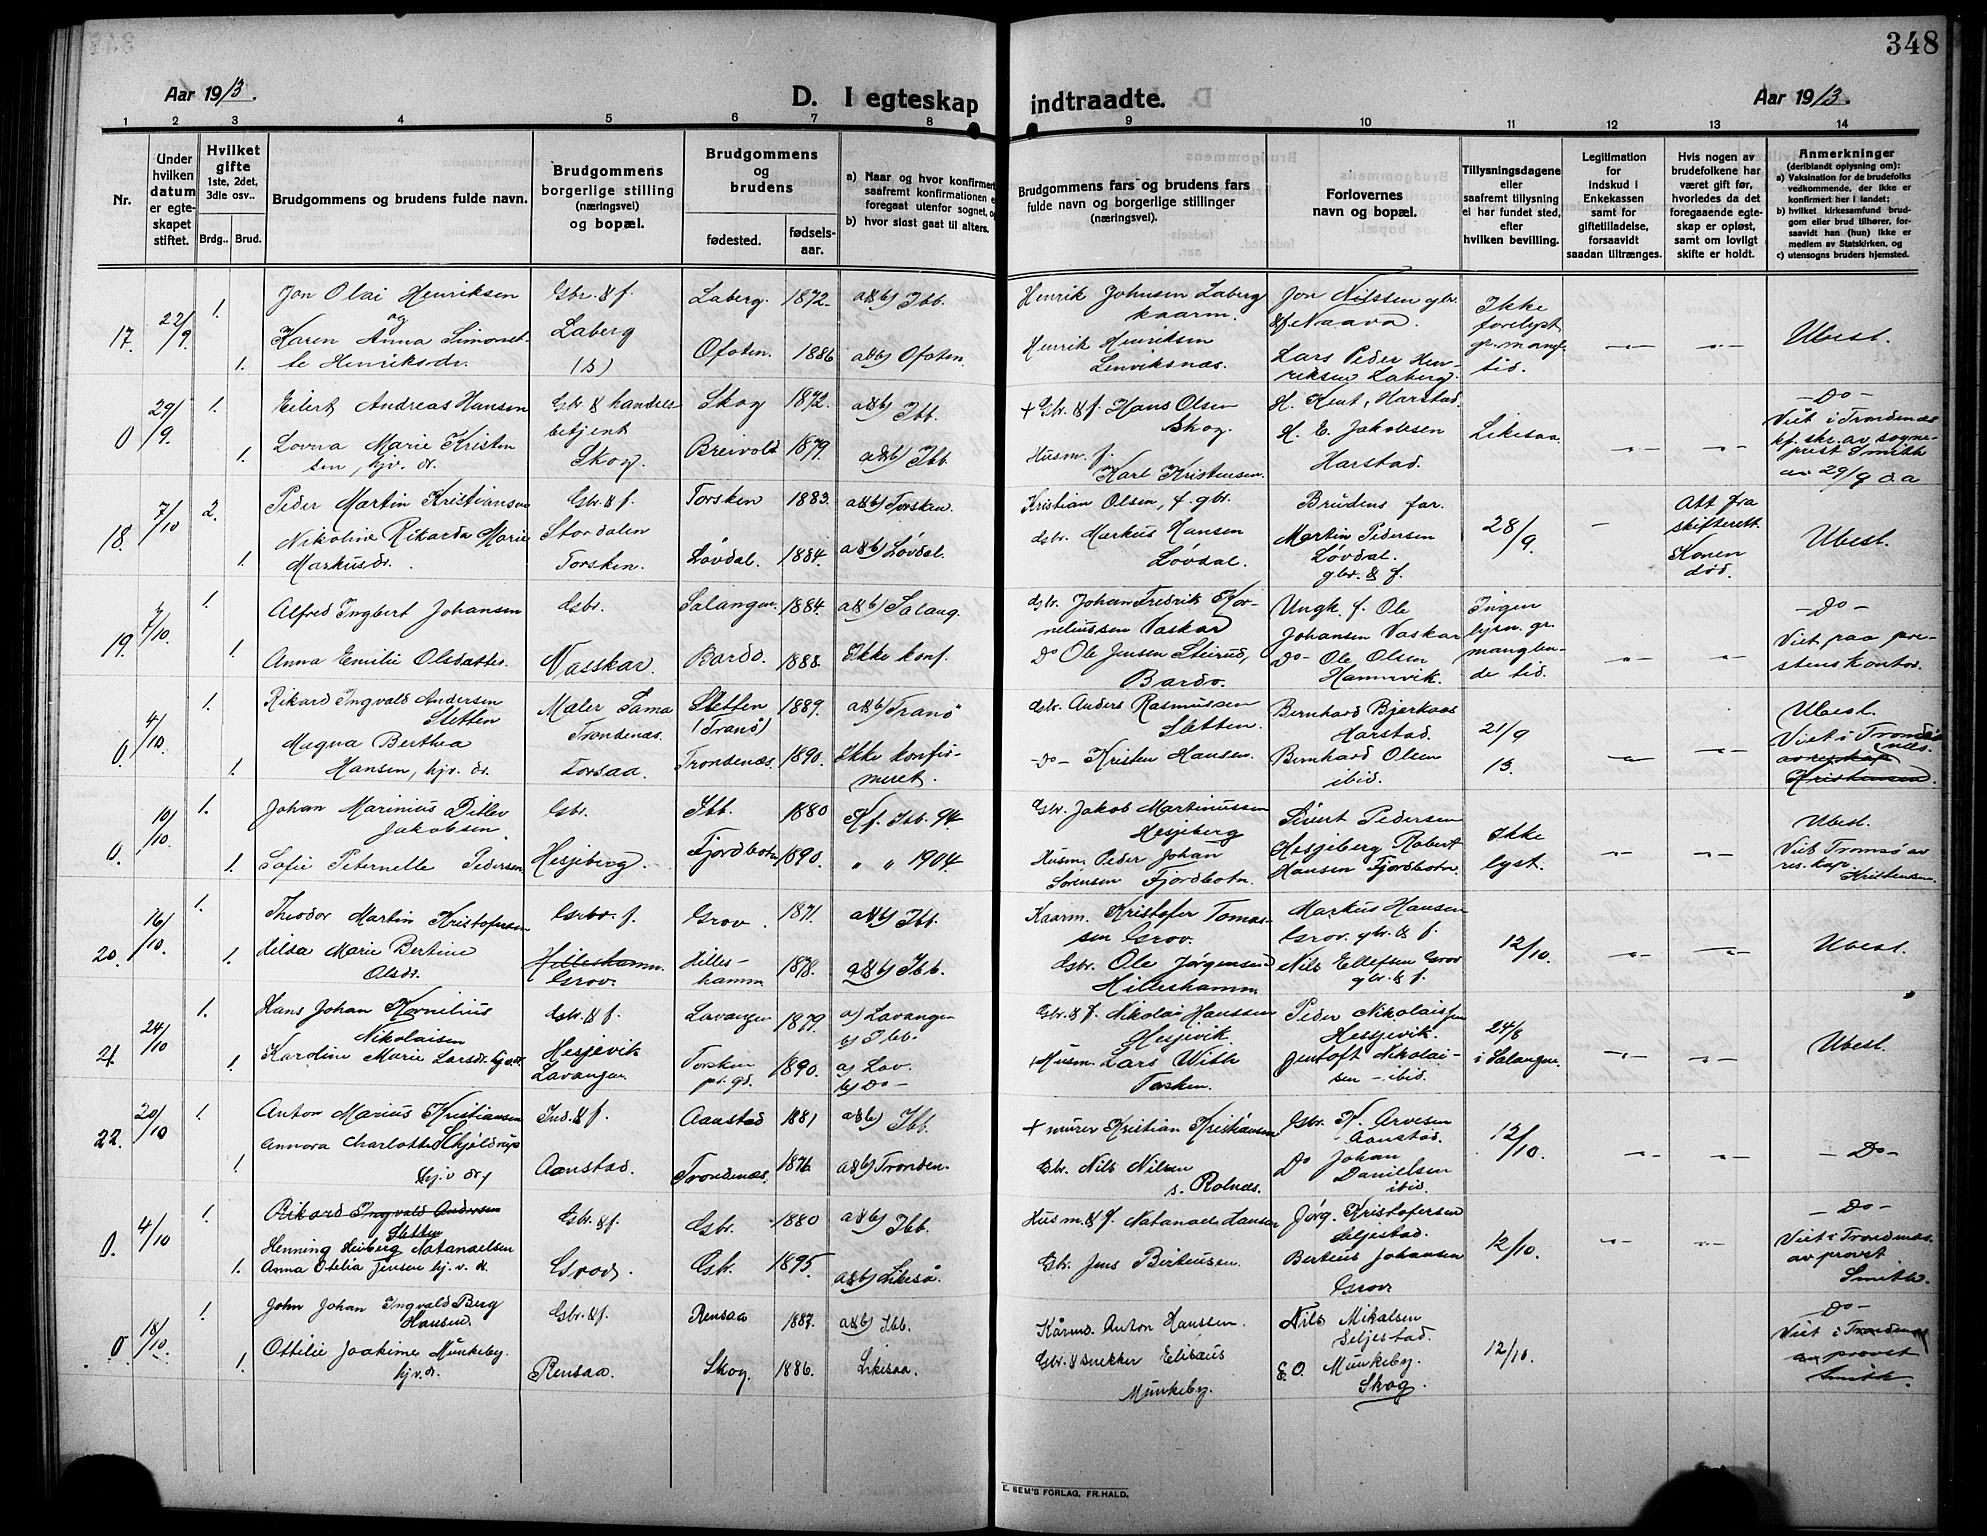 348
Aar 1913.
D. I egteskap indtraadte.
Aar 1913.
1 2 3 4 5 6 7 8 9 10 11 12 13 14
Nr.
Under hvilken datum er egteskapet stiftet.
Hvilket gifte 1ste, 2det, 3die osv..
Brdg.. Brud.
Brudgommens og brudens fulde navn.
Brudgommens borgerlige stilling (næringsvei) og bopæl.
Brudgommens og brudens
fødested. fødselsaar.
a) Naar og hvor konfirmert saafremt konfirmationen e foregaat utenfor sognet, o
b) hvor sidst gaat til alters.
Brudgommens fars og brudens fars fulde navn og borgerlige stillinger (næringsvei).
Forlovernes navn og bopæl.
Tillysningsdagene eller saafremt tillysning ei har fundet sted, efter hvilken bevilling.
Legitimation for Indskud i Enkekassen samt for giftetilladelse, forsaavidt saadan tiltrænges.
Hvis nogen av brudefolkene har været gift før, hvorledes da det foregaaende egteskap er opløst, samt om lovligt skifte er holdt.
Anmerkninger (deriblandt oplysning om):
a) Vaksination for de brudefolks vedkommende, der ikke er konfirmert her i landet;
b) hvilket kirkesamfund brudgom eller brud tilhører, forsaavidt han (hun) ikke er medlem av Statskirken, og
c) utensogns bruders hjemsted.
17. 22/9 1. Jon Olai Henriksen Gbr. & f. Laberg. 1872. a&b) Ibb. Henrik Johnsen Laberg kaarm. Jon Nilssen gbr. &f Naava. Ikke forelyst gr. mangl. tid. -"- -"- Ubest.
og
1. Karen Anna Simonette Henriksdr. Laberg (B) Ofoten. 1886 a&b) Ofoten. Henrik Henriksen Lenviksnæs. Lars Peder Henriksen Laberg.
0 29/9. 1. Eilert Andreas Hansen Gbr & handelsbetjent Skog 1872. a&b) Ibb. + Gbr. & f. Hans Olsen Skog. H. Kent, Harstad. Likesaa. -"- -"- -Do- Viet i Trondenæs kf. skr. av sogneprest Smith av 29/9 d.a
1. Lovna Marie Kristensen, hjv. dr. Skog. Breivold 1879. a&b) Ibb. Husm. f. Karl Kristensen. H. E. Jakobsen Harstad.
18. 7/10 2. Peder Martin Kristiansen Gbr. & f. Torsken 1883. a&b) Torsken. Kristian Olsen, f. gbr. Brudens far. 28/9. - Att fra skifterett. Konen død. Ubest.
1. Nikoline Rikarda Marie Markusdr. Stordalen Torsken. Løvdal. 1884. a&b) Løvdal. Gbr. Markus Hansen Løvdal. Martin Pedersen Løvdal. gbr. & f.
19. 7/10. 1. Alfred Ingbert Johansen Gbr. Salangen. 1884. a&b) Salang. Gbr. Johan Fredrik Korneliussen Vaskar Ungk. f. Ole Johansen Vaskar Ingen lysn. gr. manglende tid. -"- -"- -Do- Viet paa prestenskontor.
1. Anna Emilie Olsdatter. Vasskar. Bardo. 1888. Ikke konf. Do Ole Jensen Steirud, Bardo. Do- Ole Olsen Hamnvik.
0 4/10. 1. Rikard Ingvald Andersen Sletten Maler Sama Sletten (Tranø) 1889. a&b) Tranø Gbr. Anders Rasmussen Sletten. Bernhard Bjerkaas Harstad. 21/9 13. -"- -"- Ubest. Viet i Trondenæs. av res kap Kristensen.
1. Magna Berthea Hansen, hjv. dr. Trondenæs. Torsaa. Trondenæs. 1890. Ikke konfirmeret. -Do- Kristen Hansen. Bernhard Olsen ibid.
0. 10/10. 1. Johan Marinius Ditlev Jakobsen. Gbr. Ibb. 1880 Kf. Ibb. 94. Gbr. Jakob Martinussen Hesjeberg Sivert Pedersen Hesjeberg Ikke lyst. -"- -"- Ubest. Viet Tromsø av res. kap. Kristensen.
1. Sofie Peternelle Pedersen Hesjeberg. Fjordbotn 1890. " " 1904. Husm. Peder Johan Sørensen Fjordbotn. Robert Hansen Fjordbotn.
20. 16/10. 1. Theodor Martin Kristofersen Grbr. f. Grov. 1871. a&b) Ibb. Kaarm. Kristofer Tomassen Grov. Markus Hansen Grov. gbr. & f. 12/10. -"- -"- Ubest.
1. Hilda Marie Bertine Olsdr. Hilleshamn. Grov. Hilleshamn 1878. a&b) Ibb. Gbr. Ole Jørgensen Hilleshamn Nils Ellefsen Grov gbr. & f.
21 24/10 1. Hans Johan Kornilius Nikolaisen Gbr. & f. Lavangen 1879. a) Lavangen b) Ibb. Gbr. & f. Nikolai Hanssen Hesjevik. Peder Nikolaissen Hesjevik. 24/8 i Salangen. -"- -"- Ubest.
1. Karoline Marie Larsdr. hjv. dr. Hesjevik Lavangen. Torsken 1890. a) Lav. b) Do- + Husm. Lars With Torsken. Jentoft Nikolaisen - ibid.
22. 20/10 1. Anton Marius Kristiansen Ind. & f. Aanstad 1881 a&b) Ibb. + murer Kristian Kristiansen Gbr. K. Arvesen Aanstad. 12/10. -"- -"- -Do-
1. Annora Charlotte Schjeldrup hj. v dr. Aanstad. Trondenæs. 1876 a&b) Tronden. Gbr. Nils Nilsen s. Rolnæs. Do Johan Danielsen ibid.
0. 4/10 1. Rikard Ingvald Andersen Sletten
Henning Heiberg Natanaelsen Gbr. & f. Gbr. 1880 a&b) Ibb. Husm. & f. Natanael Hansen Jørg. Kristofersen Seljestad. 12/10. -"- -"- -Do- Viet i Trondenæs. av provst Smith.
1. Anna Otelia Jensen hj. v. dr. Grov. Gbr. 1895. a&b) Likeså. Gbr. Jens Berteussen. Berteus Johansen Grov
0 18/10. 1. John Johan Ingvald Berg Hansen. Gbr. & f. Rensaa 1887. a&b) Ibb. Kårmd. Anton Hanssen. Nils Mikalsen Seljestad. 12/10. -"- -"- -Do- Viet i Trondenæs av provst Smith.
1. Ottilie Joakime Munkeby. hjv. dr. Rensaa. Skog. 1886. Likesaa. Gbr & snekker Elisæus Munkeby. E. O. Munkeby. Skog.
E. SEM'S FORLAG, FR.HALD.